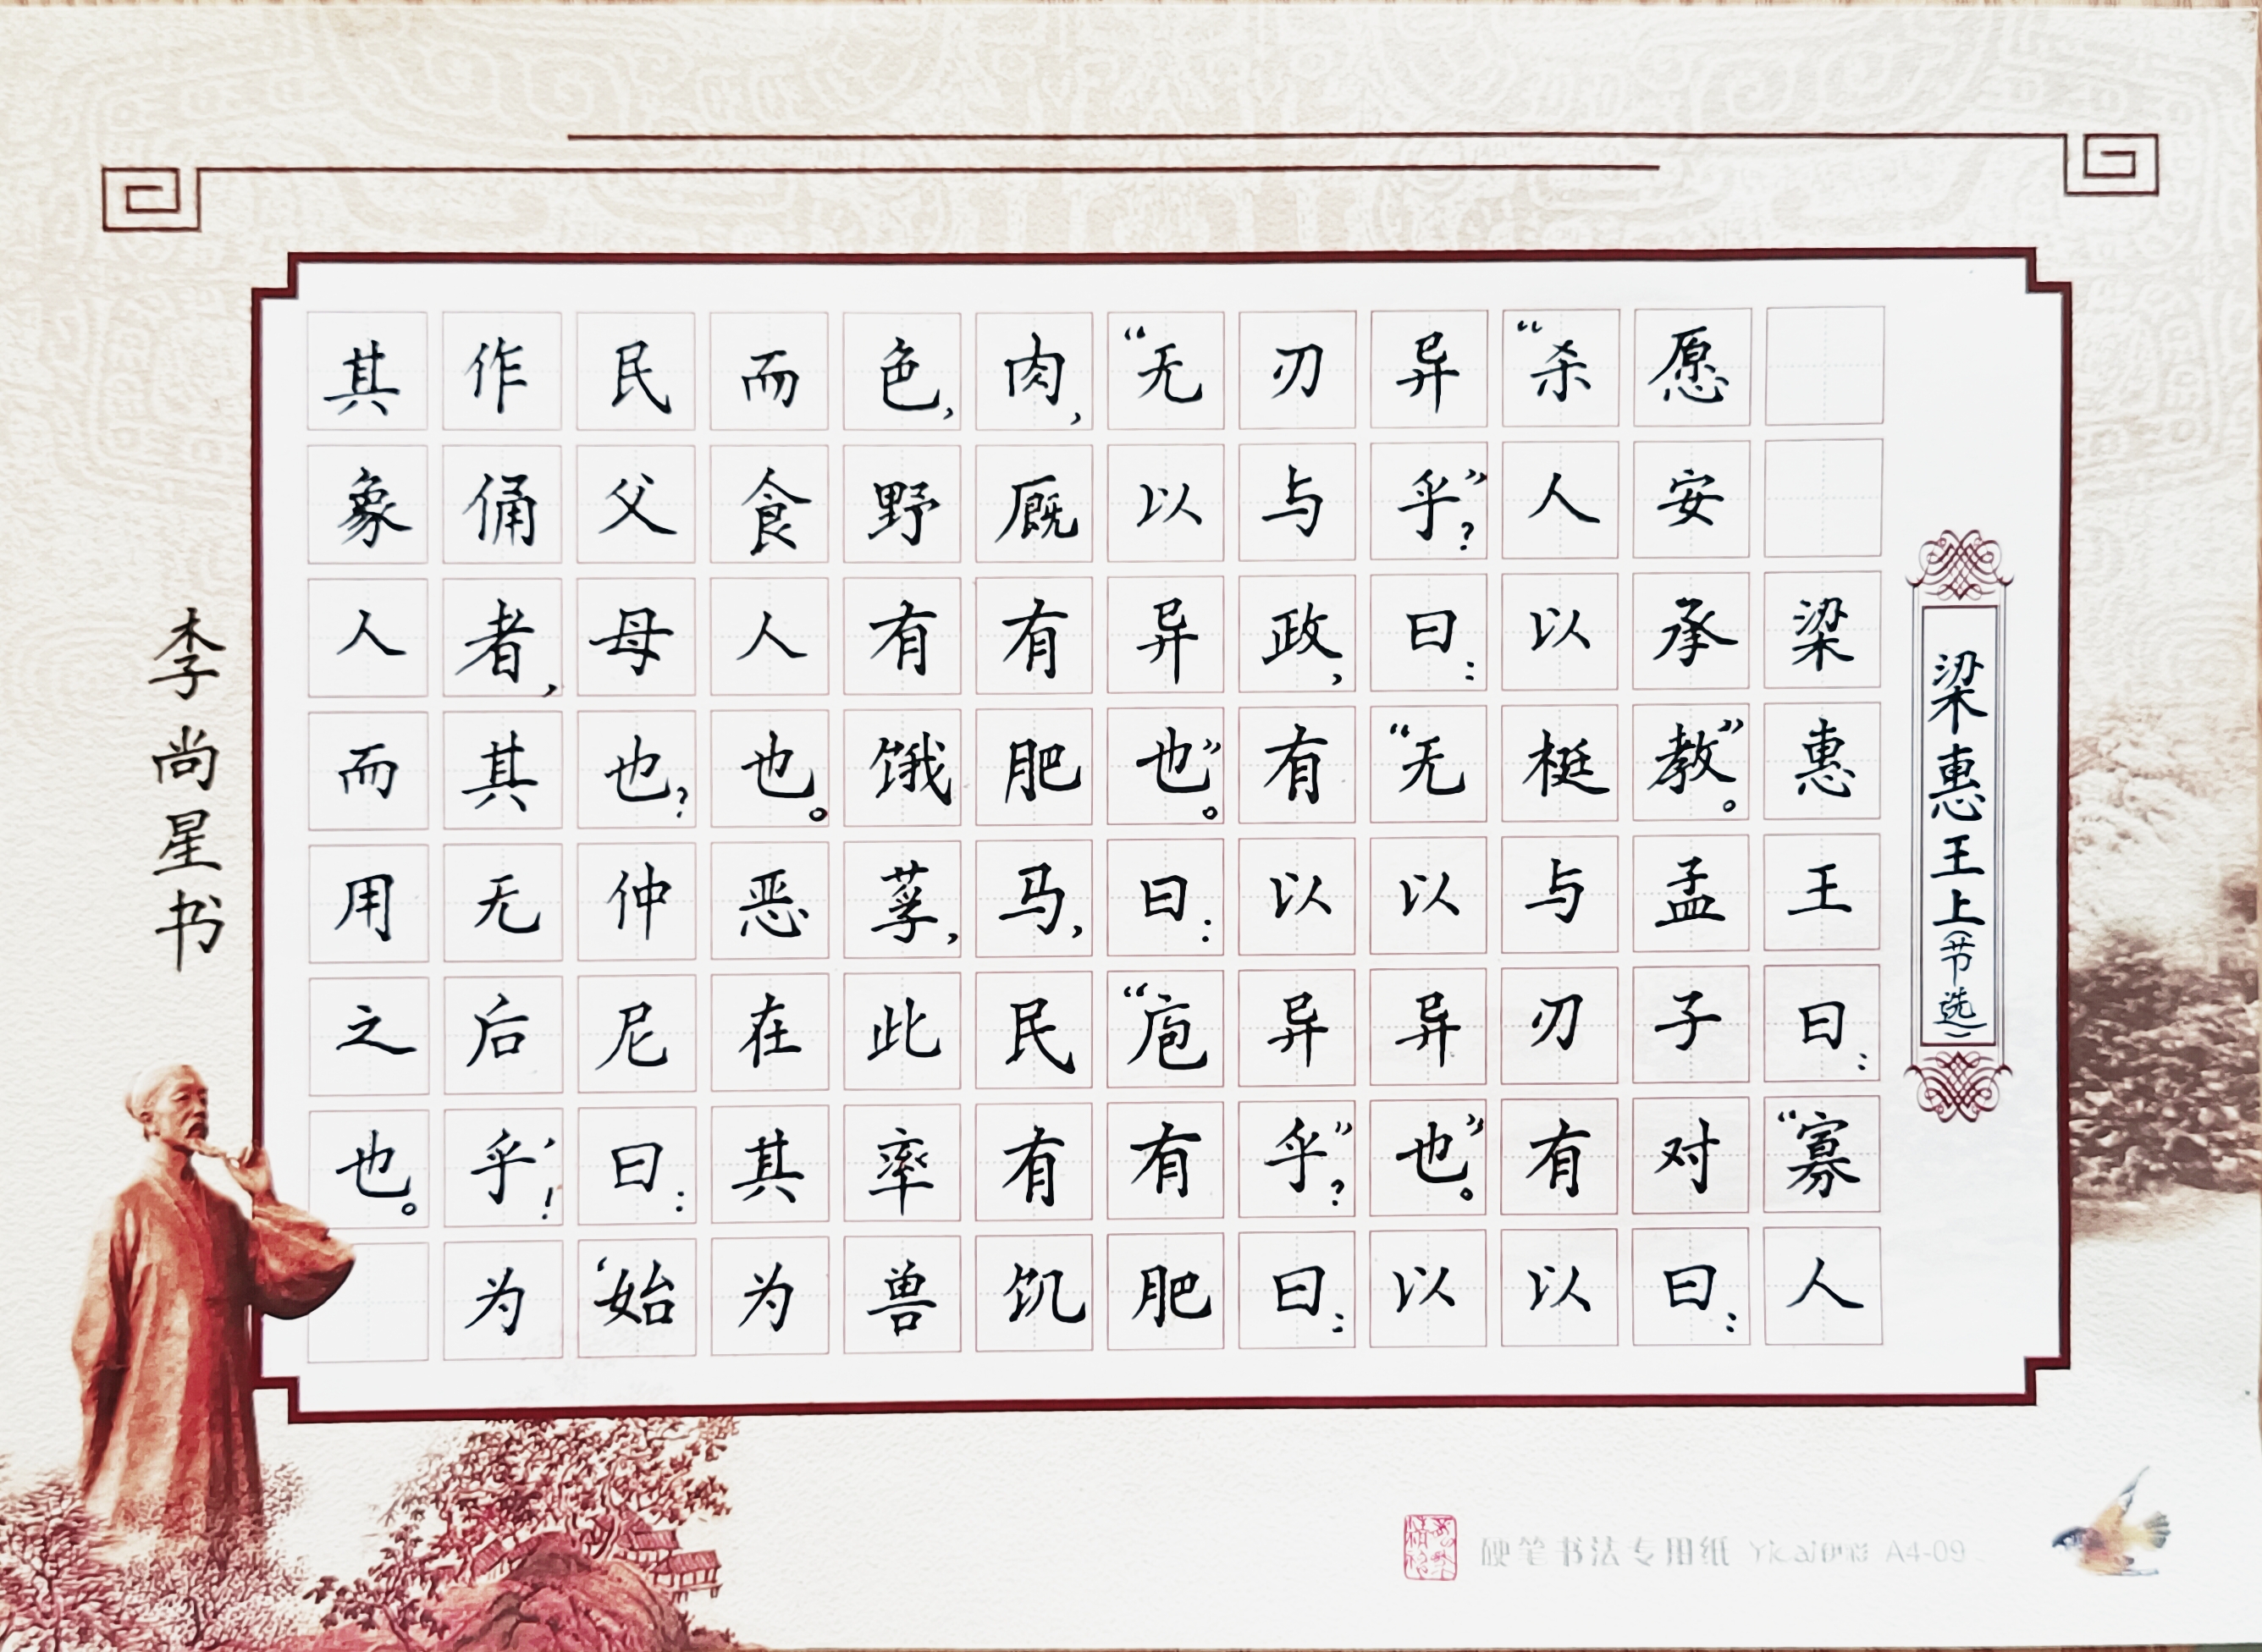 梁惠王上(节选)
梁惠王曰:“寡人
愿安承教”。孟子对曰:
“杀人以梃与刃有以
异乎”?曰:“无以异也”。以
刃与政,有以异乎”?曰:
“无以异也”。曰:“庖有肥
肉,厩有肥马,民有饥
色,野有饿莩,此率兽
而食人也。恶在其为
民父母也?仲尼曰:‘始
作俑者,其无后乎’!为
其象人而用之也。
李尚星书
硬笔书法专用纸 Yicai伊彩 A4-09